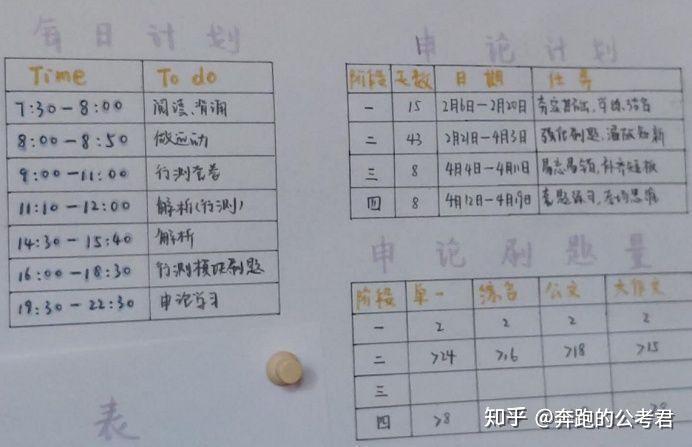 每日计划
Time To do
7:30-8:00 阅读、背诵
8:00-8:50 做运动
9:00-11:00 行测套卷
11:10-12:00 解析(行测)
14:30-15:40 解析
16:00-18:30 行测模块刷题
19:30-22:30 申论学习
表
申论计划
阶段 天数 日期 任务
一 15 2月6日-2月20日
二 43 2月21日-4月3日 强化刷题、温故知新
三 8 4月4日-4月11日 易忘易错,补齐短板
四 8 4月12日-4月19日 套题练习,
申论刷题量
阶段 单一 综合 公文 大作文
一 2 2 2 2
二 >24 >16 >18 >15
三
四 >8
知乎 @奔跑的公考君